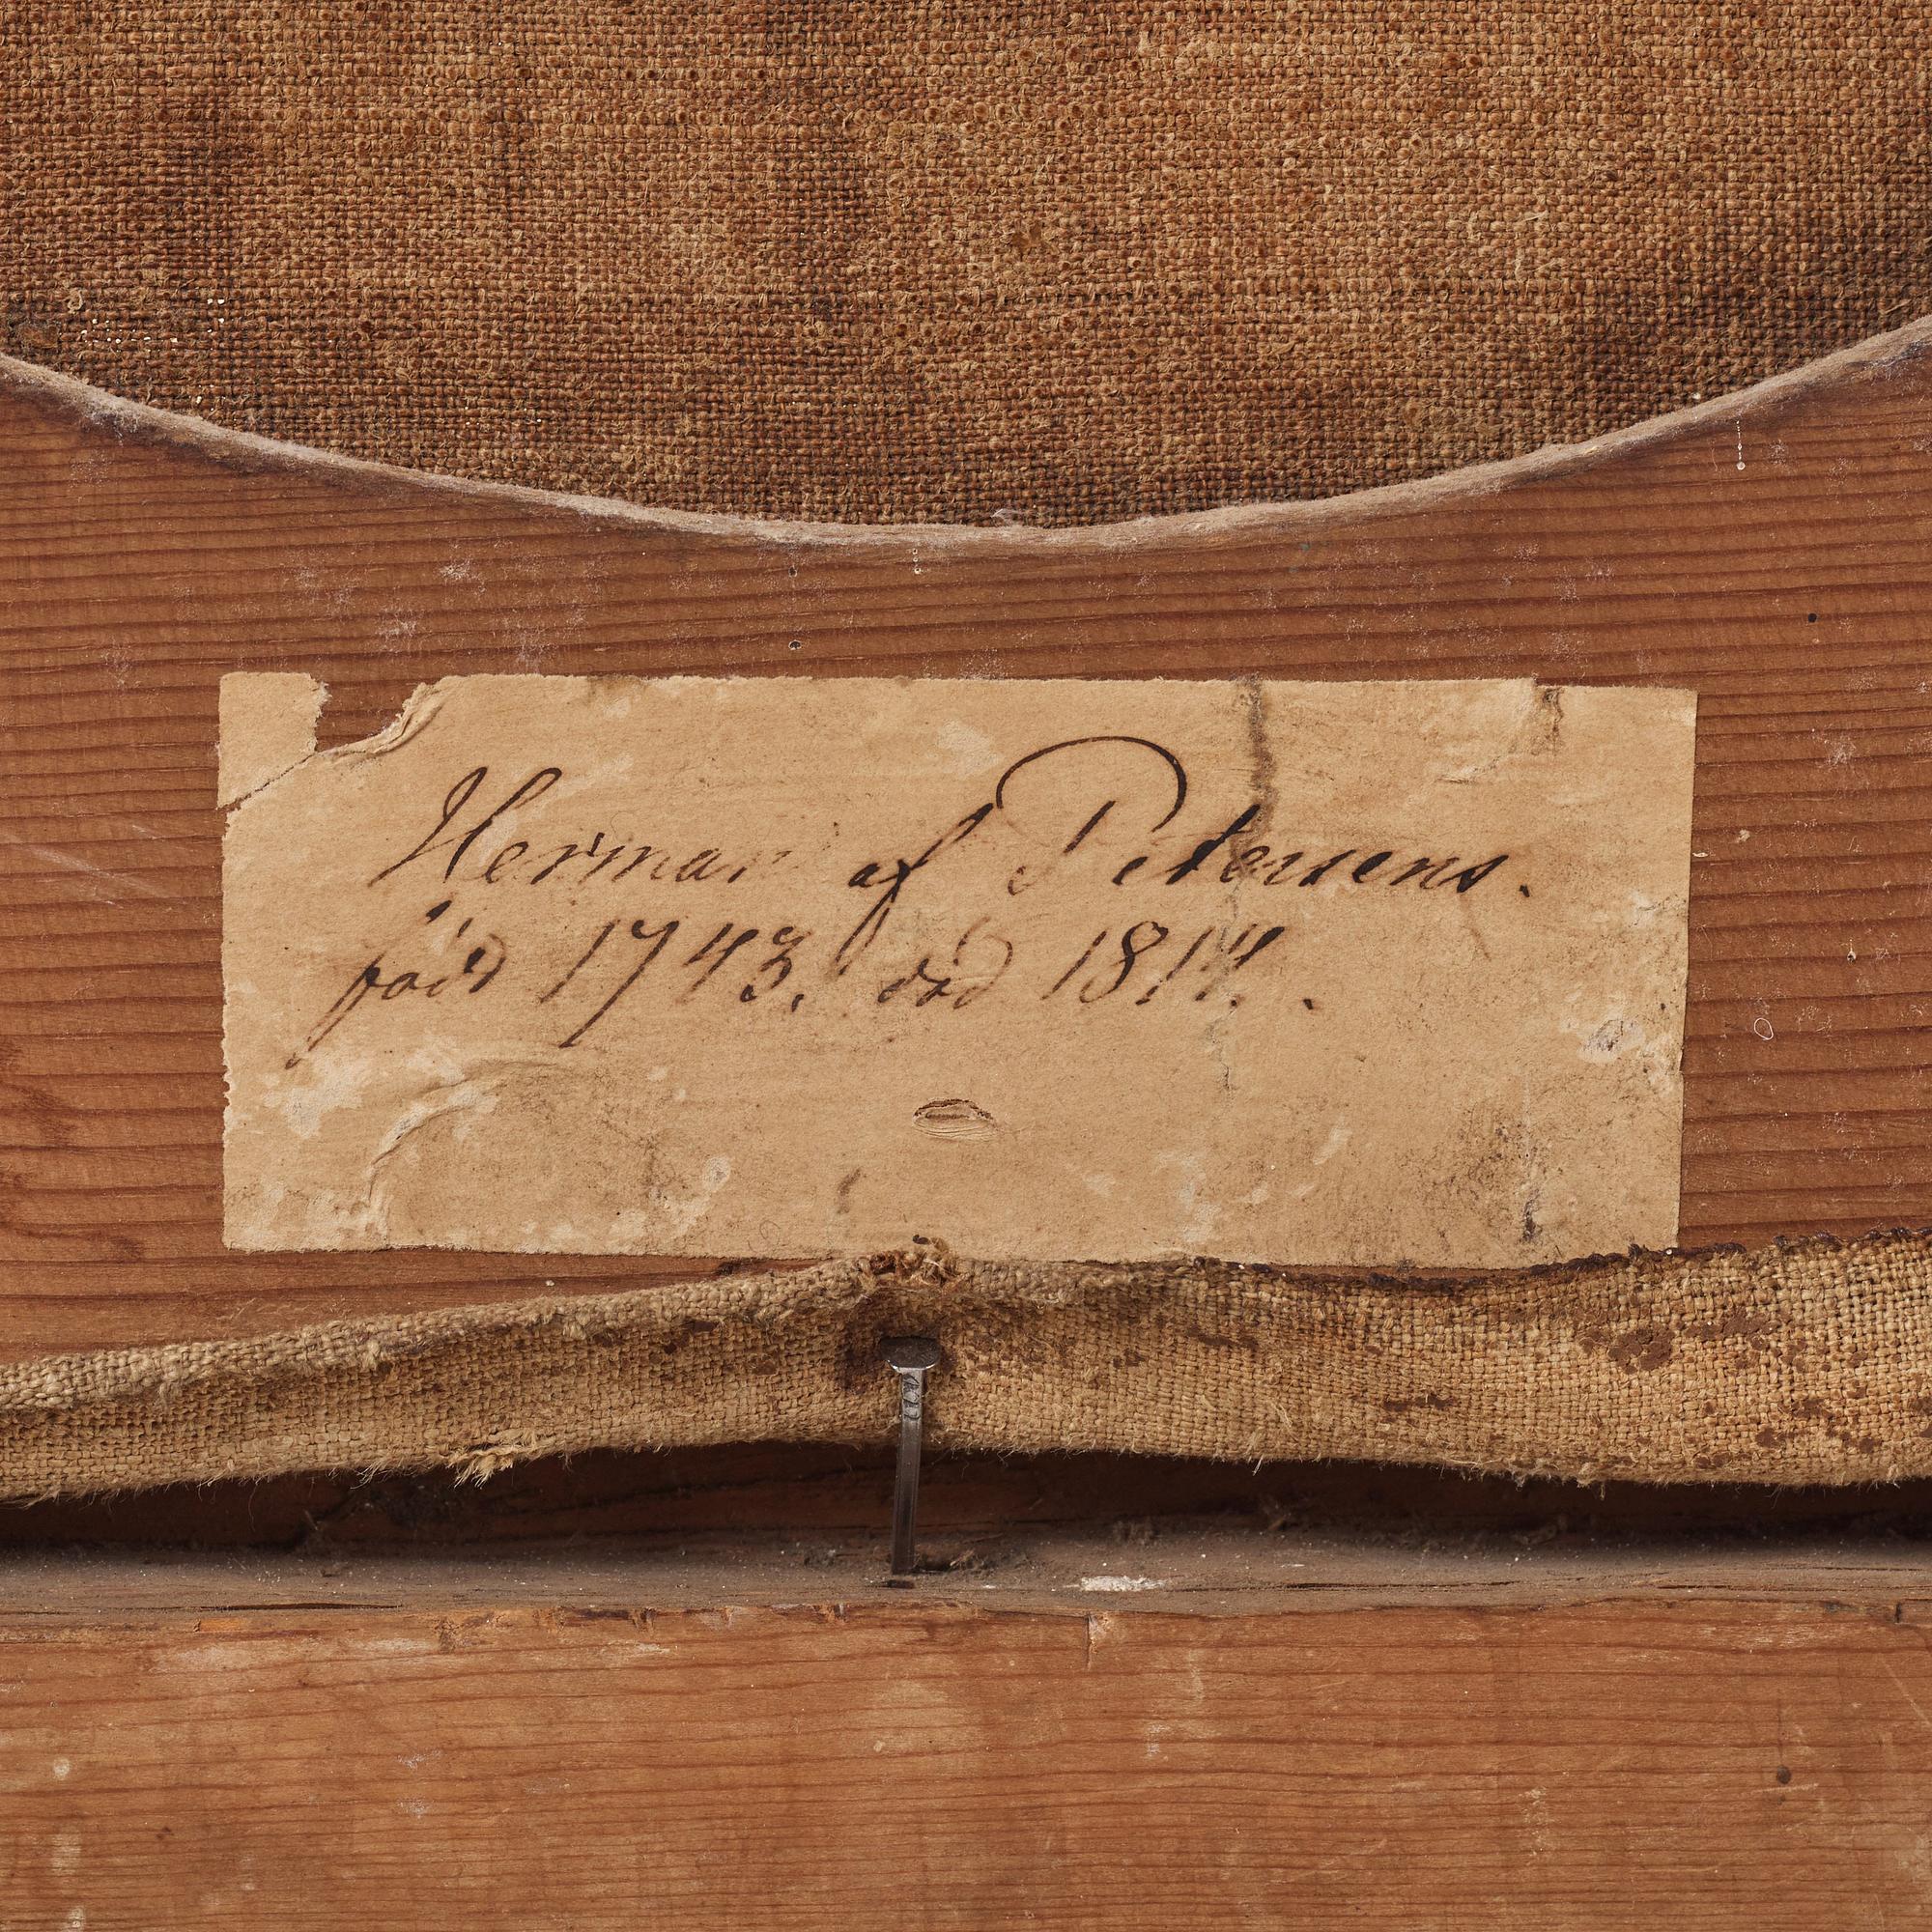 Herman af Petersens.
född 1743, död 1814.